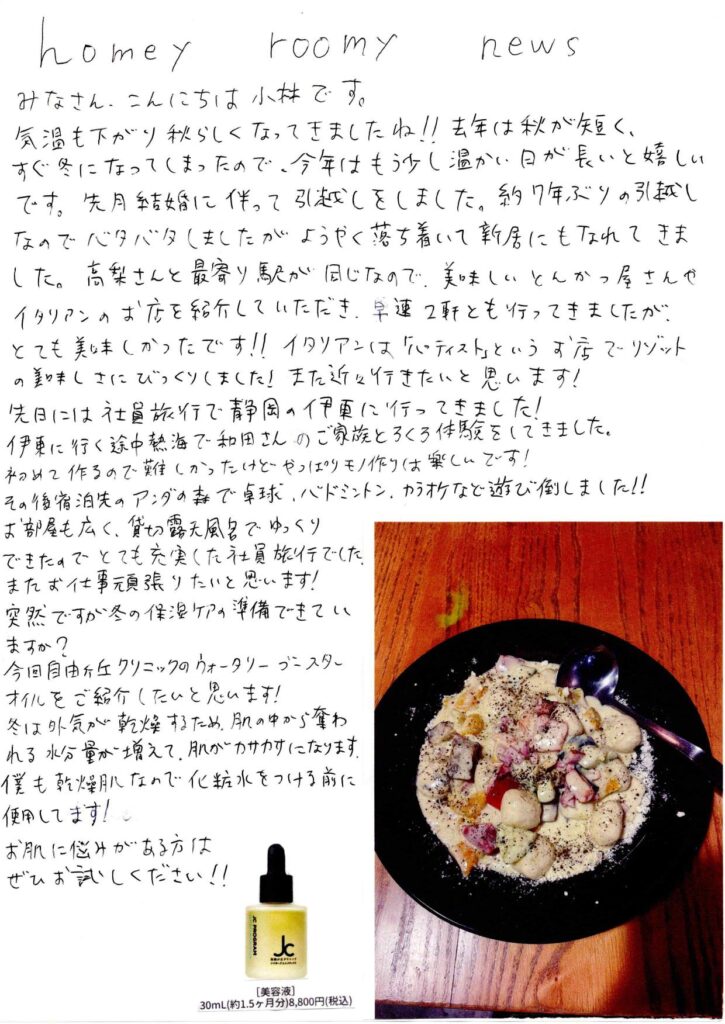 homey roomy news
みなさん、こんにちは 小林です。
気温も下がり秋らしくなってきましたね!! 去年は秋が短く、
すぐ冬になってしまったので、今年はもう少し温かい日が長いと嬉しい
です。先月結婚に伴って引越しをしました。約7年ぶりの引越し
なのでバタバタしましたがようやく落ち着いて新居にもなれてきま
した。高梨さんと最寄り駅が同じなので、美味しいとんかつ屋さんや
イタリアンのお店を紹介していただき、早速2軒とも行ってきましたが、
とても美味しかったです!! イタリアンは「パティスト」というお店でリゾット
の美味しさにびっくりしました! また近々行きたいと思います!
先日には社員旅行で静岡の伊東に行ってきました!
伊東に行く途中熱海で和田さんのご家族とろくろ体験をしてきました。
初めて作るので難しかったけどやっぱりモノ作りは楽しいです!
その後宿泊先のアンダの森で卓球、バドミントン、カラオケなど遊び倒しました!!
お部屋も広く、貸切露天風呂でゆっくり
できたのでとても充実した社員旅行でした。
またお仕事頑張りたいと思います!
突然ですが冬の保湿ケアの準備できてい
ますか?
今回自由が丘クリニックのウォータリーブースター
オイルをご紹介したいと思います!
冬は外気が乾燥するため、肌の中から奪わ
れる水分量が増えて、肌がカサカサになります。
僕も乾燥肌なので化粧水をつける前に
使用してます!
お肌に悩みがある方は
ぜひお試しください!!
JC PROGRAM
Jc
[美容液]
30mL(約1.5ヶ月分)8,800円(税込)